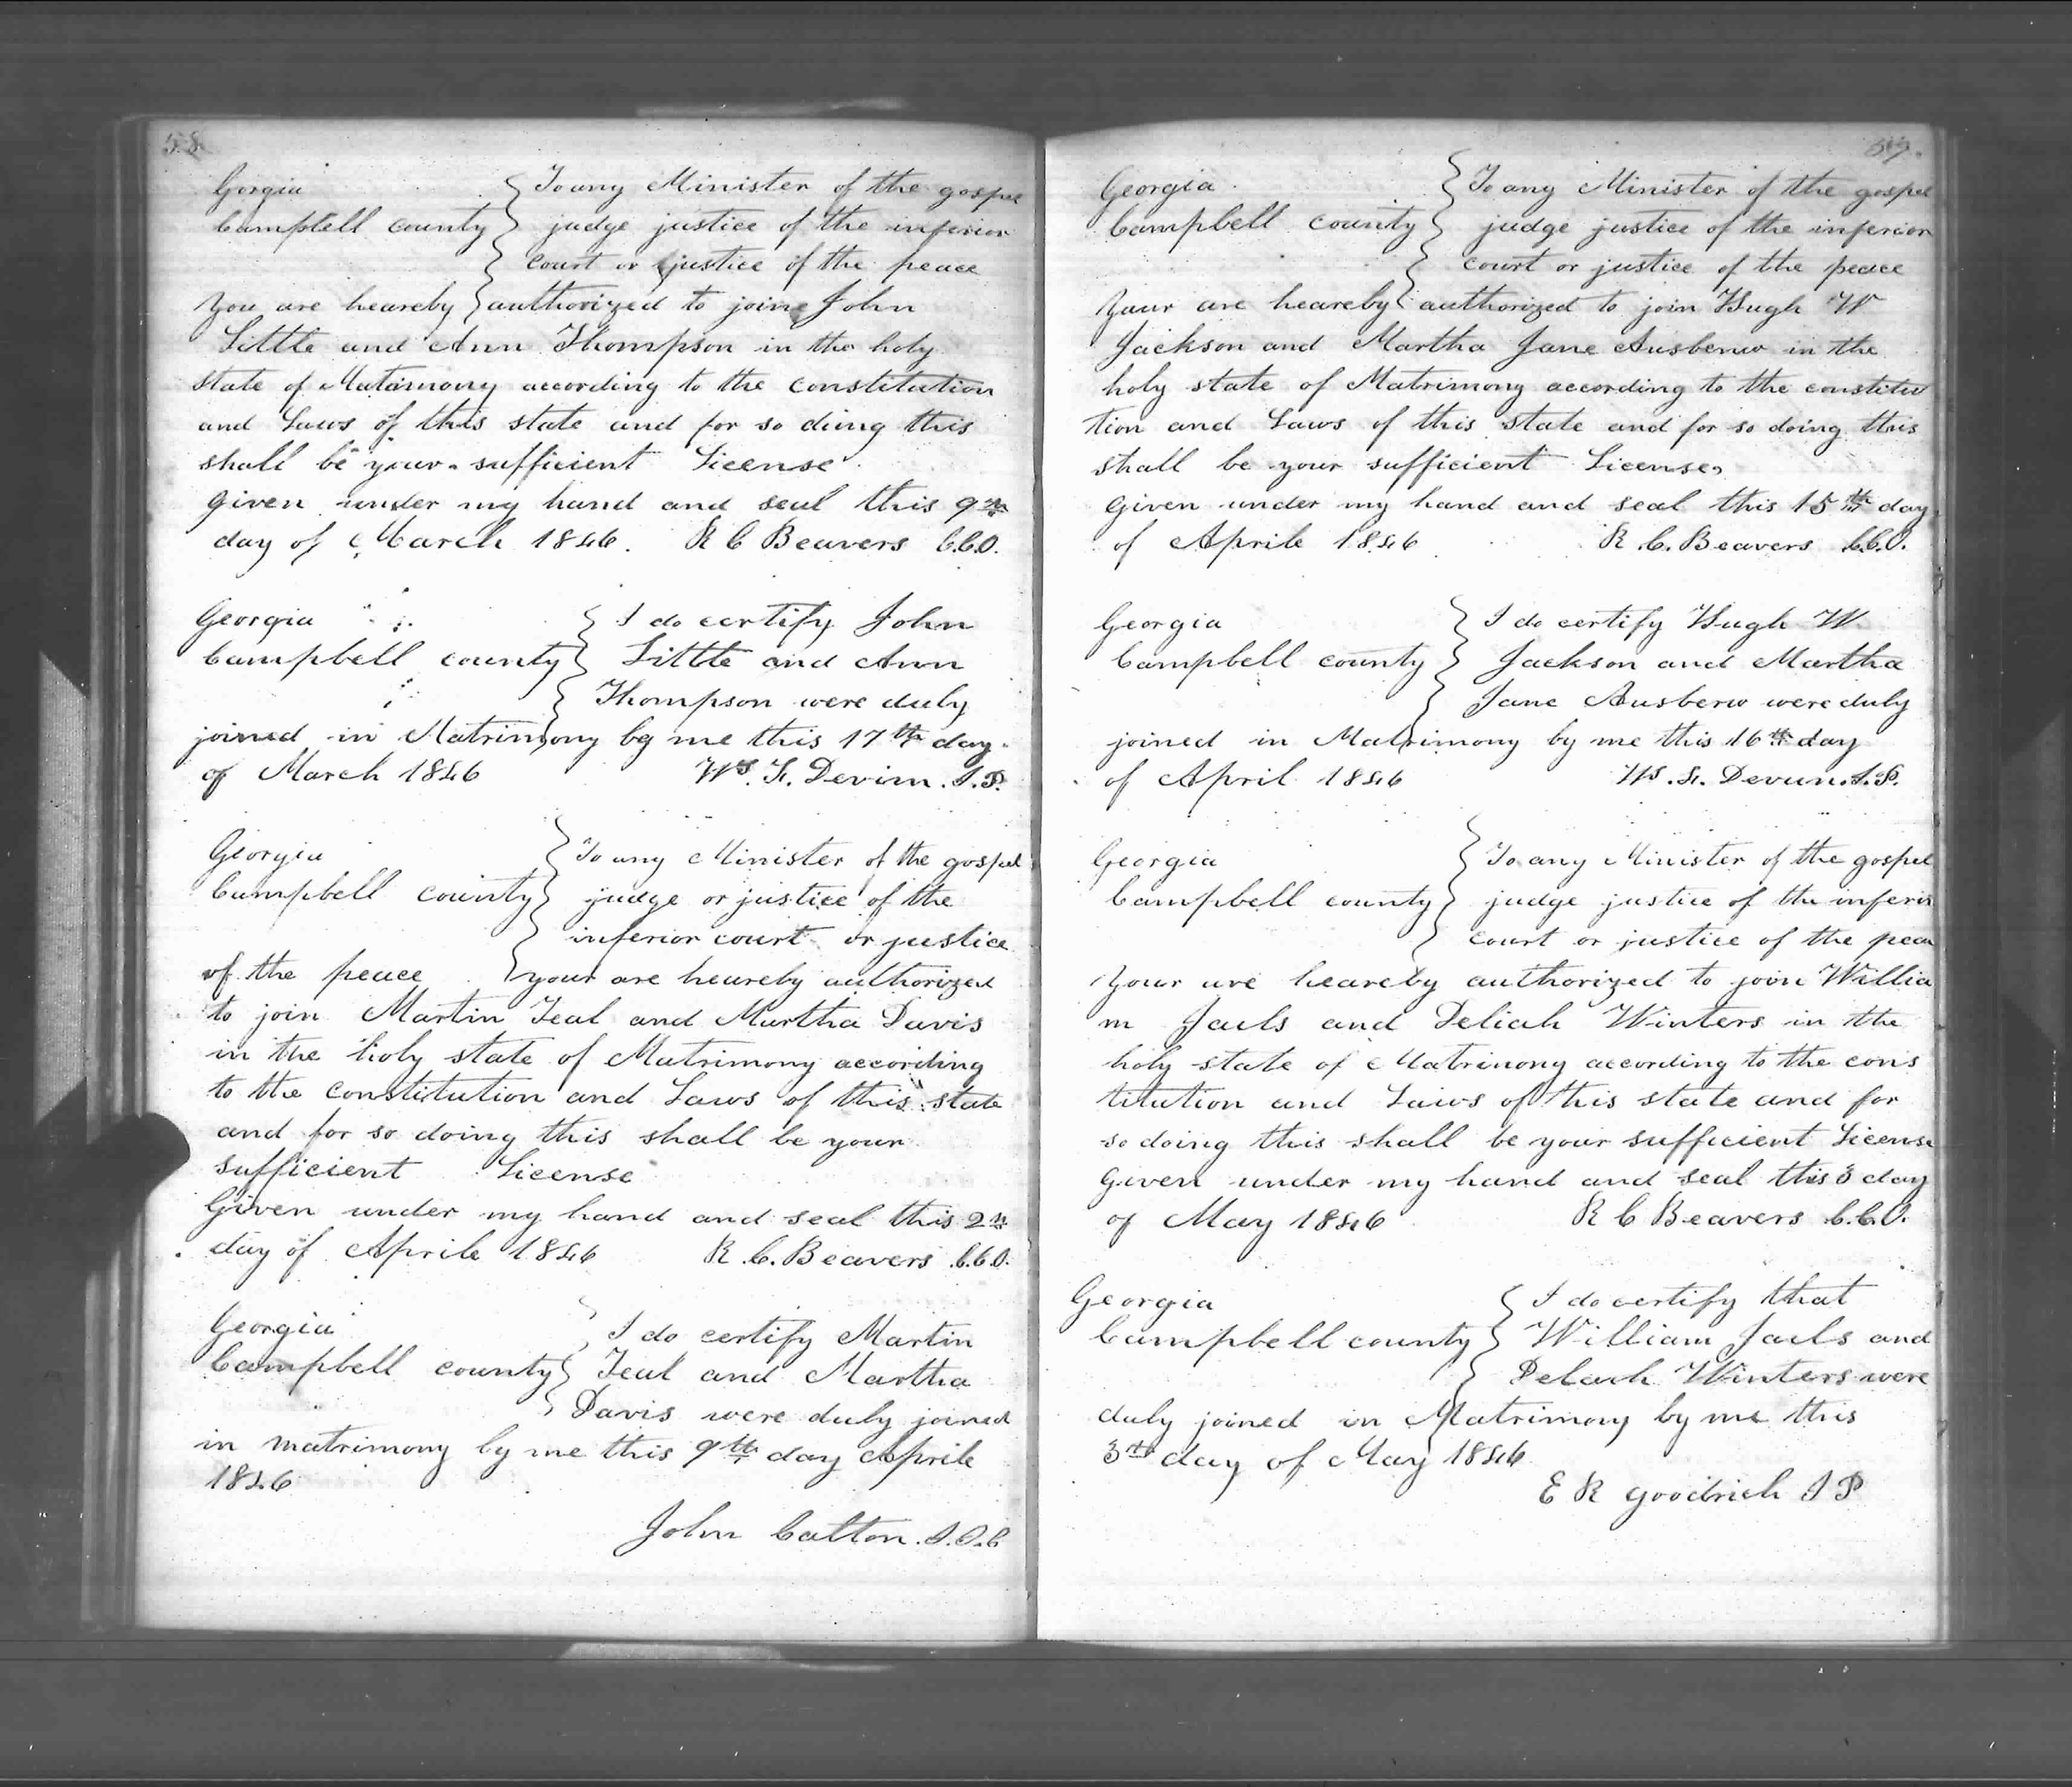 58
Gorgia } To any Minister of the gospel
Campbell county } judge justice of the inferior
court or justice of the peace
You are heareby } authorized to joine John
Little and Ann Thompson in the holy
state of Matamony according to the constitution
and Laws of this state and for so diing this
shall be your sufficient License
given under my hand and seal this 9th
day of March 1846. R C Beavers C.C.O.
Georgia } I do certify John
Campbell county } Little and Ann
Thompson were duly
joined in Matrimony by me this 17th day
of March 1846 Ws. F. Devin. J.P.
Georgia } To any Minister of the gospel
Campbell county } judge or justice of the
inferior court or justice
of the peace } your are heareby authorized
to join Martin Teal and Martha Davis
in the holy state of Matrimony according
to the constitution and Laws of this state
and for so doing this shall be your
sufficient License
Given under my hand and seal this 2n
day of Aprile 1846 R. C. Beavers C.C.O.
Georgia } I do certify Martin
Campbell county } Teal and Martha
Davis were duly joined
in matrimony by me this 9th day Aprile
1846
John Catton. J.I.C
59.
Georgia } To any Minister of the gospel
Campbell county } judge justice of the inferior
court or justice of the peace
Your are heareby authorized to join Hugh W
Jackson and Martha Jane Ausberw in the
holy state of Matrimony according to the constitu
tion and Laws of this state and for so doing this
shall be your sufficient License,
Given under my hand and seal this 15th day
of Aprile 1846 R. C. Beavers C.C.O.
Georgia } I do certify Hugh W.
Campbell county } Jackson and Martha
Jane Ausberw were duly
joined in Matrimony by me this 16th day
of April 1846 Ws. F. Devun. J.P.
Georgia } To any Minister of the gospel
Campbell county } judge justice of the inferir
court or justice of the pea
Your are heareby authorized to join Willia
m Jails and Deliah Winters in the
holy state of Matrimony according to the cons
titution and Laws of this state and for
so doing this shall be your sufficient License
Given under my hand and seal this 3 day
of May 1846 R C Beavers C.C.O.
Georgia } I do certify that
Campbell county } William Jails and
Delaih Winters were
duly joined in Matrimony by me this
3th day of May 1846
E R Goodrich J P